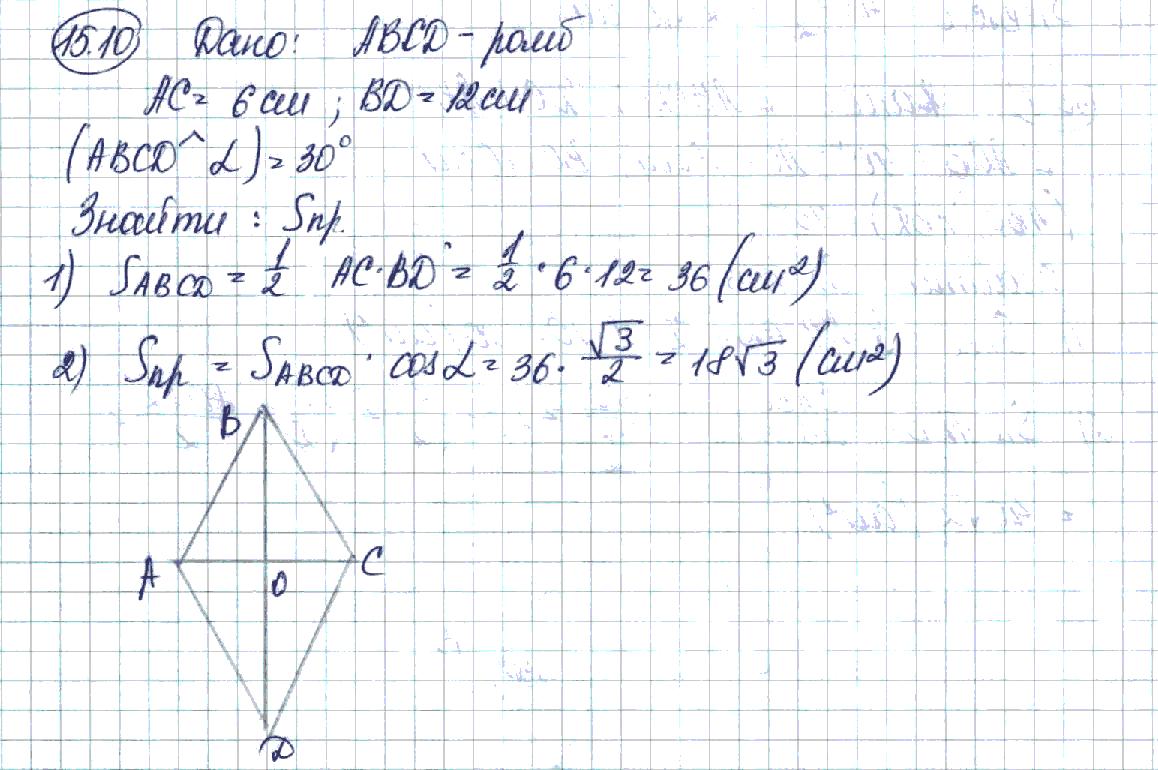 15.10 Дано: ABCD - ромб
AC = 6 см ; BD = 12 см
(ABCD ^ α) = 30°
Знайти : Sпр.
1) SABCD = 1/2 AC · BD = 1/2 · 6 · 12 = 36 (см²)
2) Sпр = SABCD · cos α = 36 · √3/2 = 18√3 (см²)
B
A O C
D